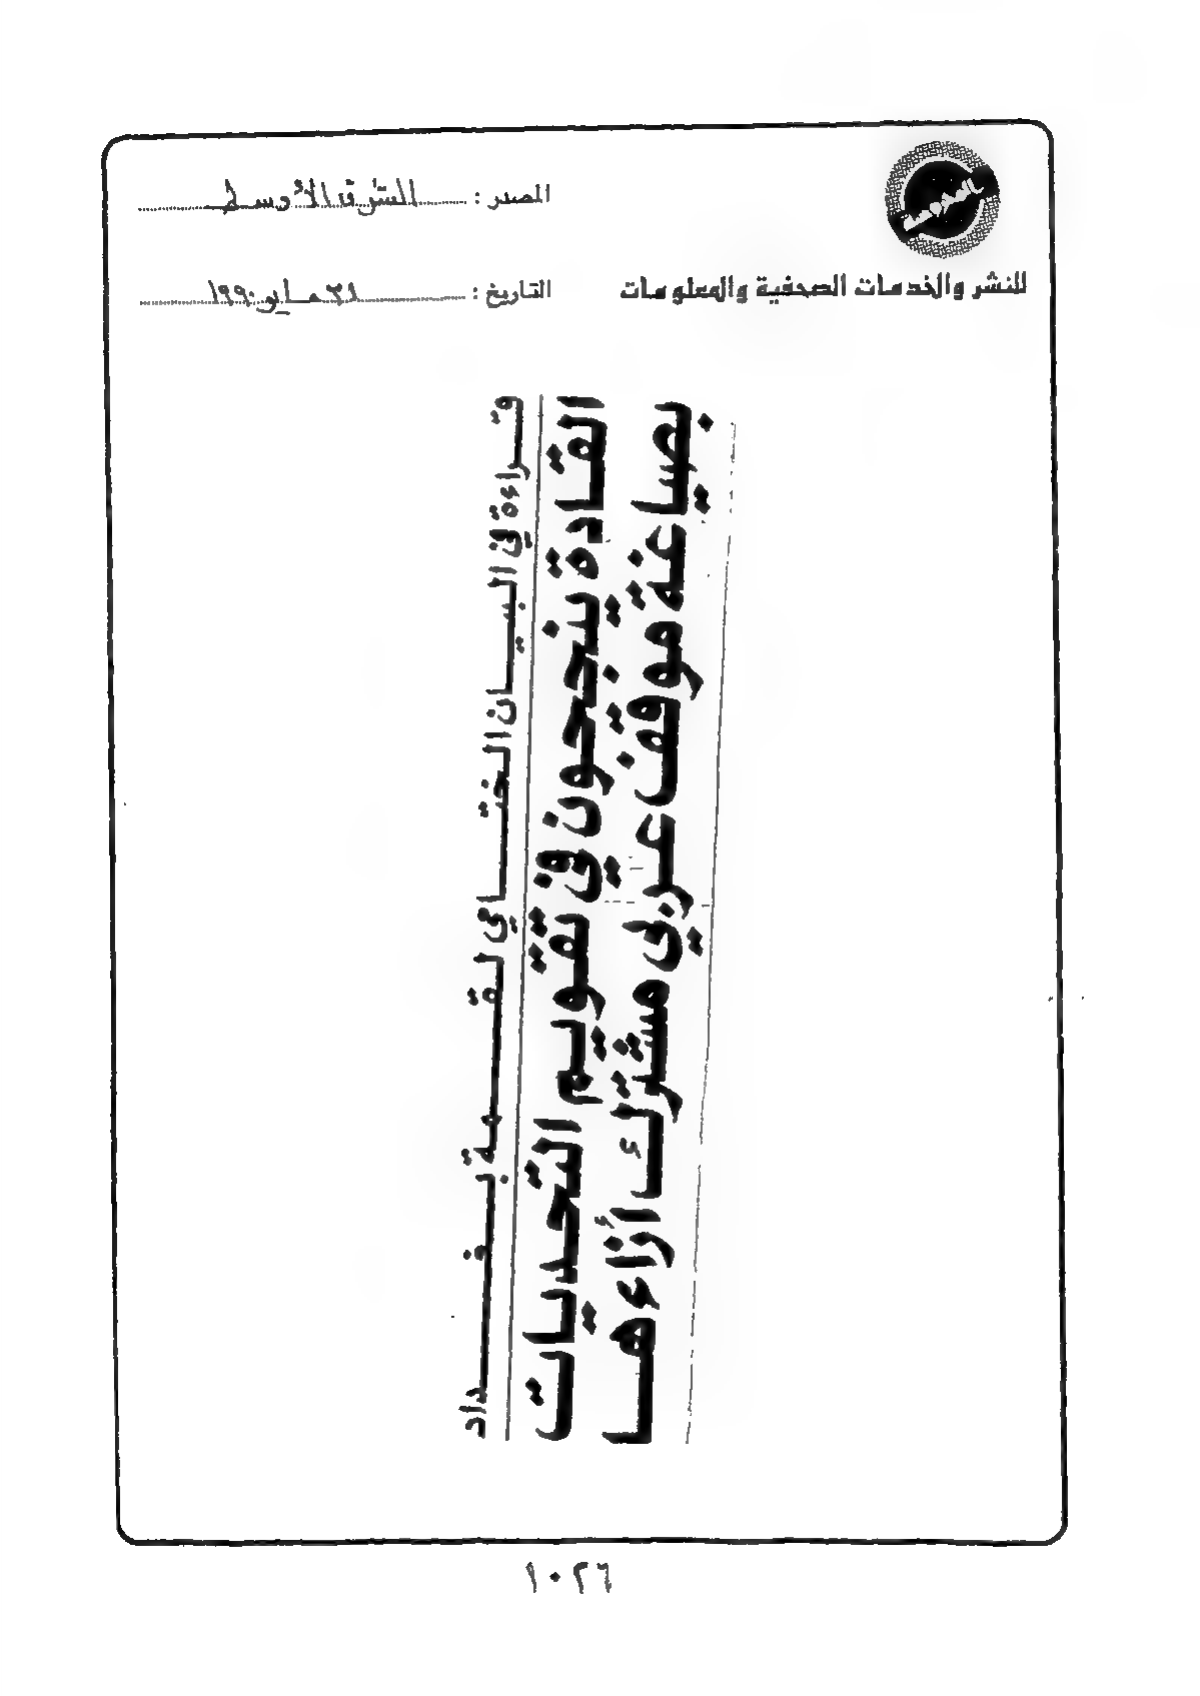 المحروسة
للنشر والخدمات الصحفية والمعلومات
المصدر : الشرق الأوسط
التاريخ : ٣١ مايو ١٩٩٠
قراءة في البيان الختامي لقمة بغداد
القادة ينجحون في تقويم التحديات
بصياغة موقف عربي مشترك أزاءها
١٠٢٦